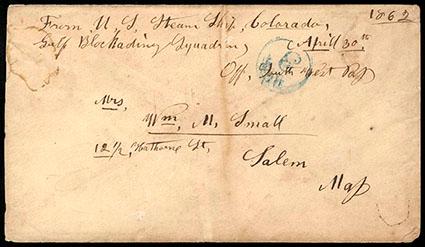 1862
From U, S, Steam Ship, Colorado,
Gulf Blockading Squadron, April 30th
Off, South West Pass
Mrs,
Wm, M, Small
12 1/2, Hathorne St,
Salem
Mass